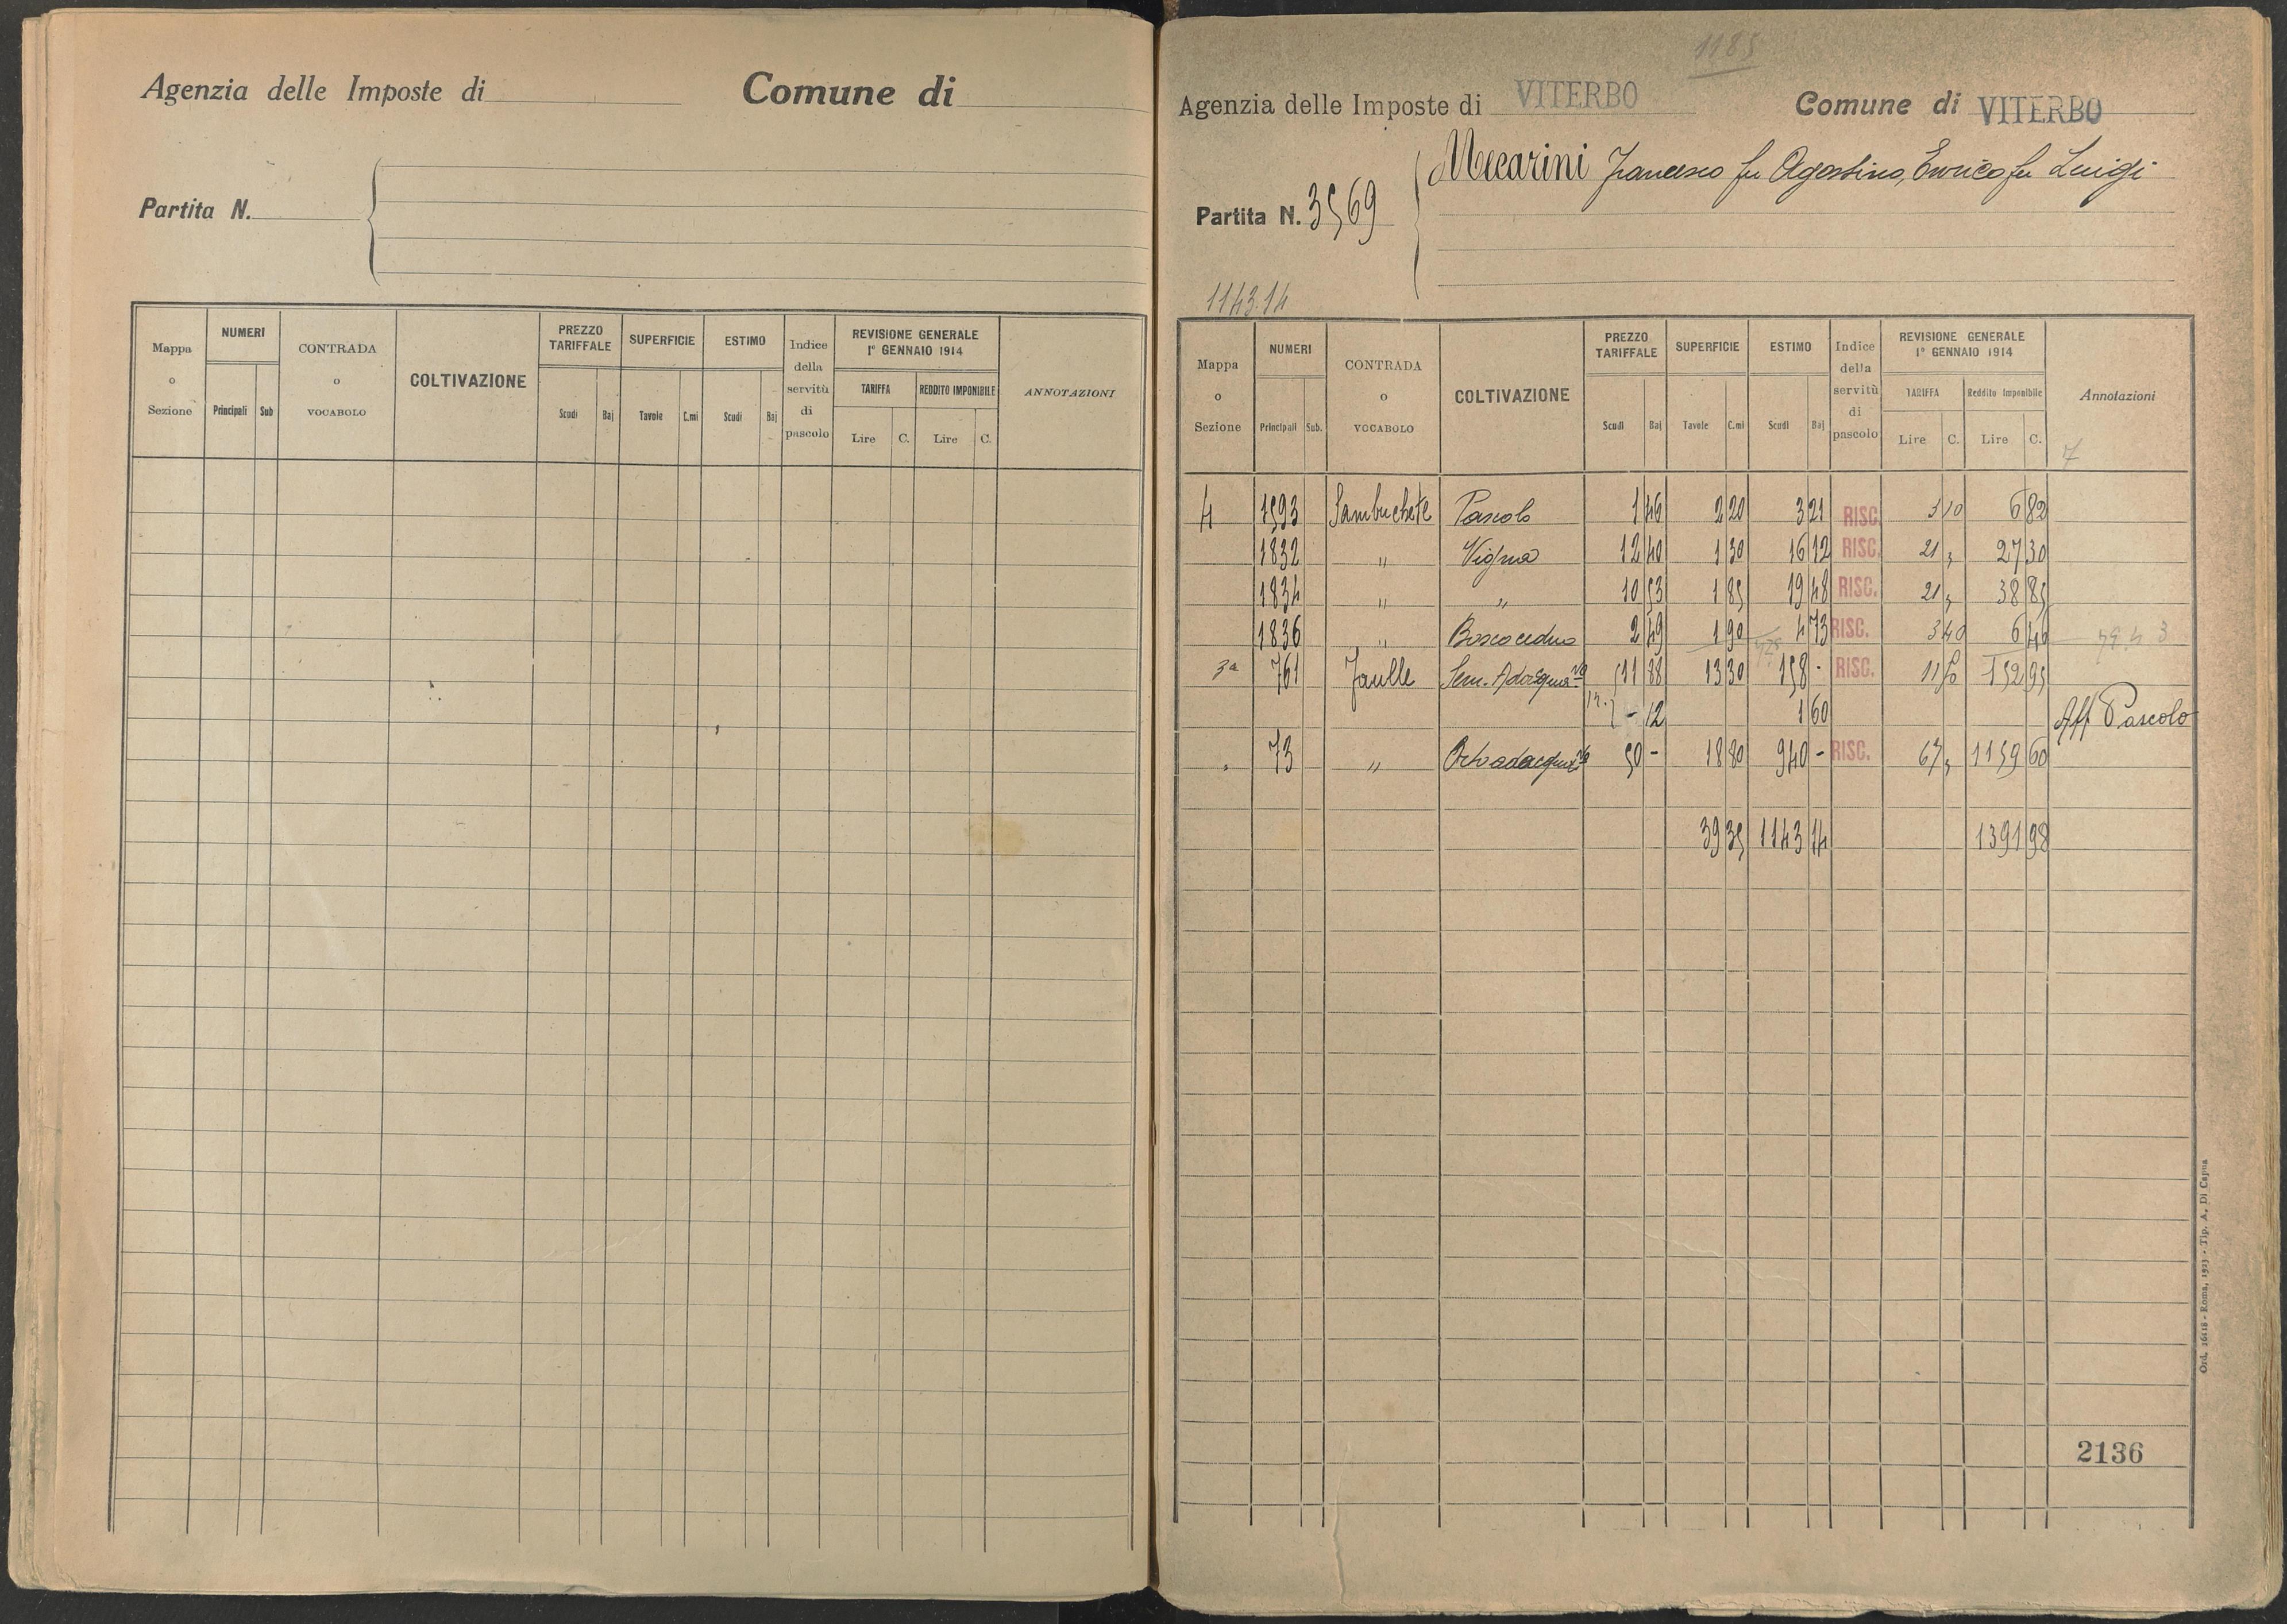 Agenzia delle Imposte di Comune di
Partita N.
Mappa o Sezione NUMERI Principali Sub CONTRADA o VOCABOLO COLTIVAZIONE PREZZO TARIFFALE Scudi Baj SUPERFICIE Tavole C.mi ESTIMO Scudi Baj Indice della servitù di pascolo REVISIONE GENERALE 1º GENNAIO 1914 TARIFFA Lire C. REDDITO IMPONIBILE Lire C. ANNOTAZIONI
1185
Agenzia delle Imposte di VITERBO Comune di VITERBO
Mecarini Francesco fu Agostino, Enrico fu Luigi
Partita N. 3569
1143.14
Mappa o Sezione NUMERI Principali Sub. CONTRADA o VOCABOLO COLTIVAZIONE PREZZO TARIFFALE Scudi Baj SUPERFICIE Tavole C.mi ESTIMO Scudi Baj Indice della servitù di pascolo REVISIONE GENERALE 1º GENNAIO 1914 TARIFFA Lire C. Reddito Imponibile Lire C. Annotazioni
7
4 1593 Sambuchete Pascolo 1 46 2 20 3 21 RISC. 3 10 6 82
1832 " Vigna 12 40 1 30 16 12 RISC. 21 , 27 30
1834 " " 10 53 1 85 19 48 RISC. 21 , 38 85
1836 " Bosco ceduo 2 49 1 90 4 73 RISC. 3 40 6 46
3a 761 Faulle Sem. Adacquo 11 88 13 30 158 - RISC. 11 50 152 95
- 12 1 60 Aff Pascolo
" 73 " Orto adacquo 50 - 18 80 940 - RISC. 67 , 1159 60
39 35 1143 14 1391 98
2136
Ord. 16118 - Roma, 1923 - Tip. A. Di Capua